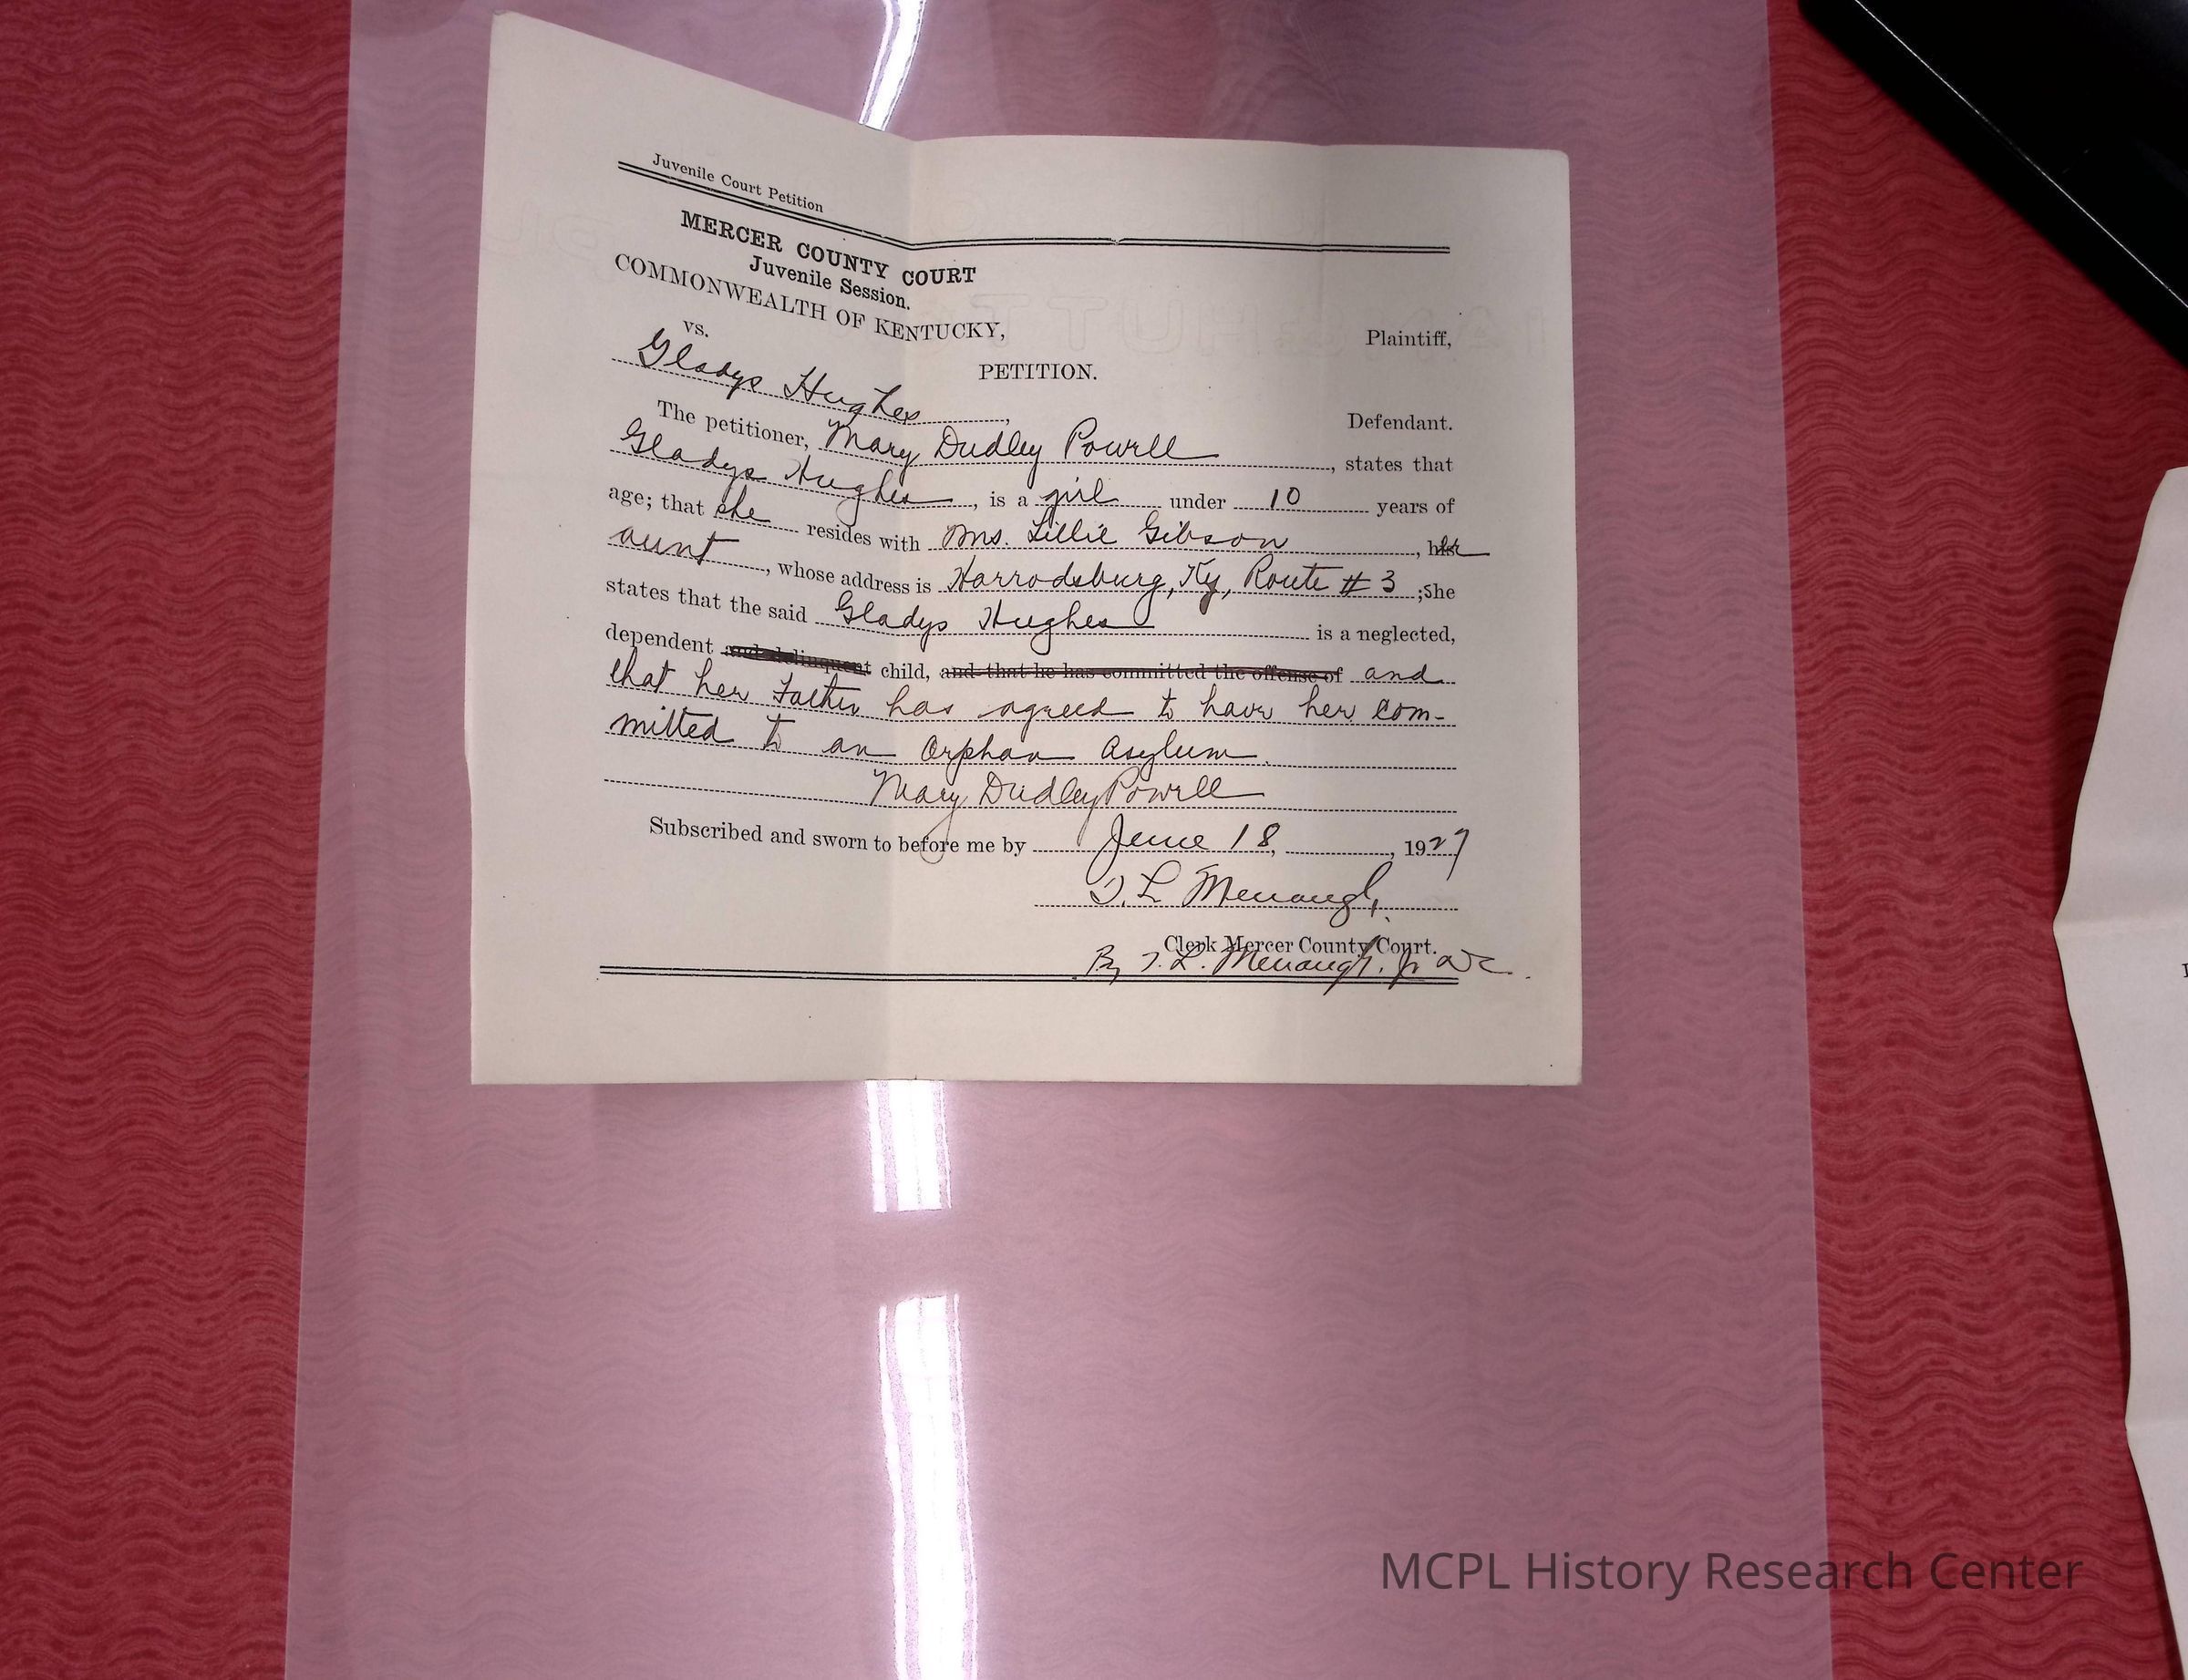 Juvenile Court Petition
MERCER COUNTY COURT
Juvenile Session.
COMMONWEALTH OF KENTUCKY,
Plaintiff,
vs.
PETITION.
Gladys Hughes,
Defendant.
The petitioner, Mary Dudley Powell, states that
Gladys Hughes, is a girl under 10 years of
age; that she resides with Mrs. Lillie Gibson, her
aunt, whose address is Harrodsburg, Ky, Route # 3 ;She
states that the said Gladys Hughes is a neglected,
dependent and delinquent child, and that he has committed the offense of and
that her Father has agreed to have her com-
mitted to an Orphan Asylum.
Mary Dudley Powell
Subscribed and sworn to before me by June 18, 1927
T. L Menaugh,
Clerk Mercer County Court.
By T. L. Menaugh, Jr DC.
MCPL History Research Center